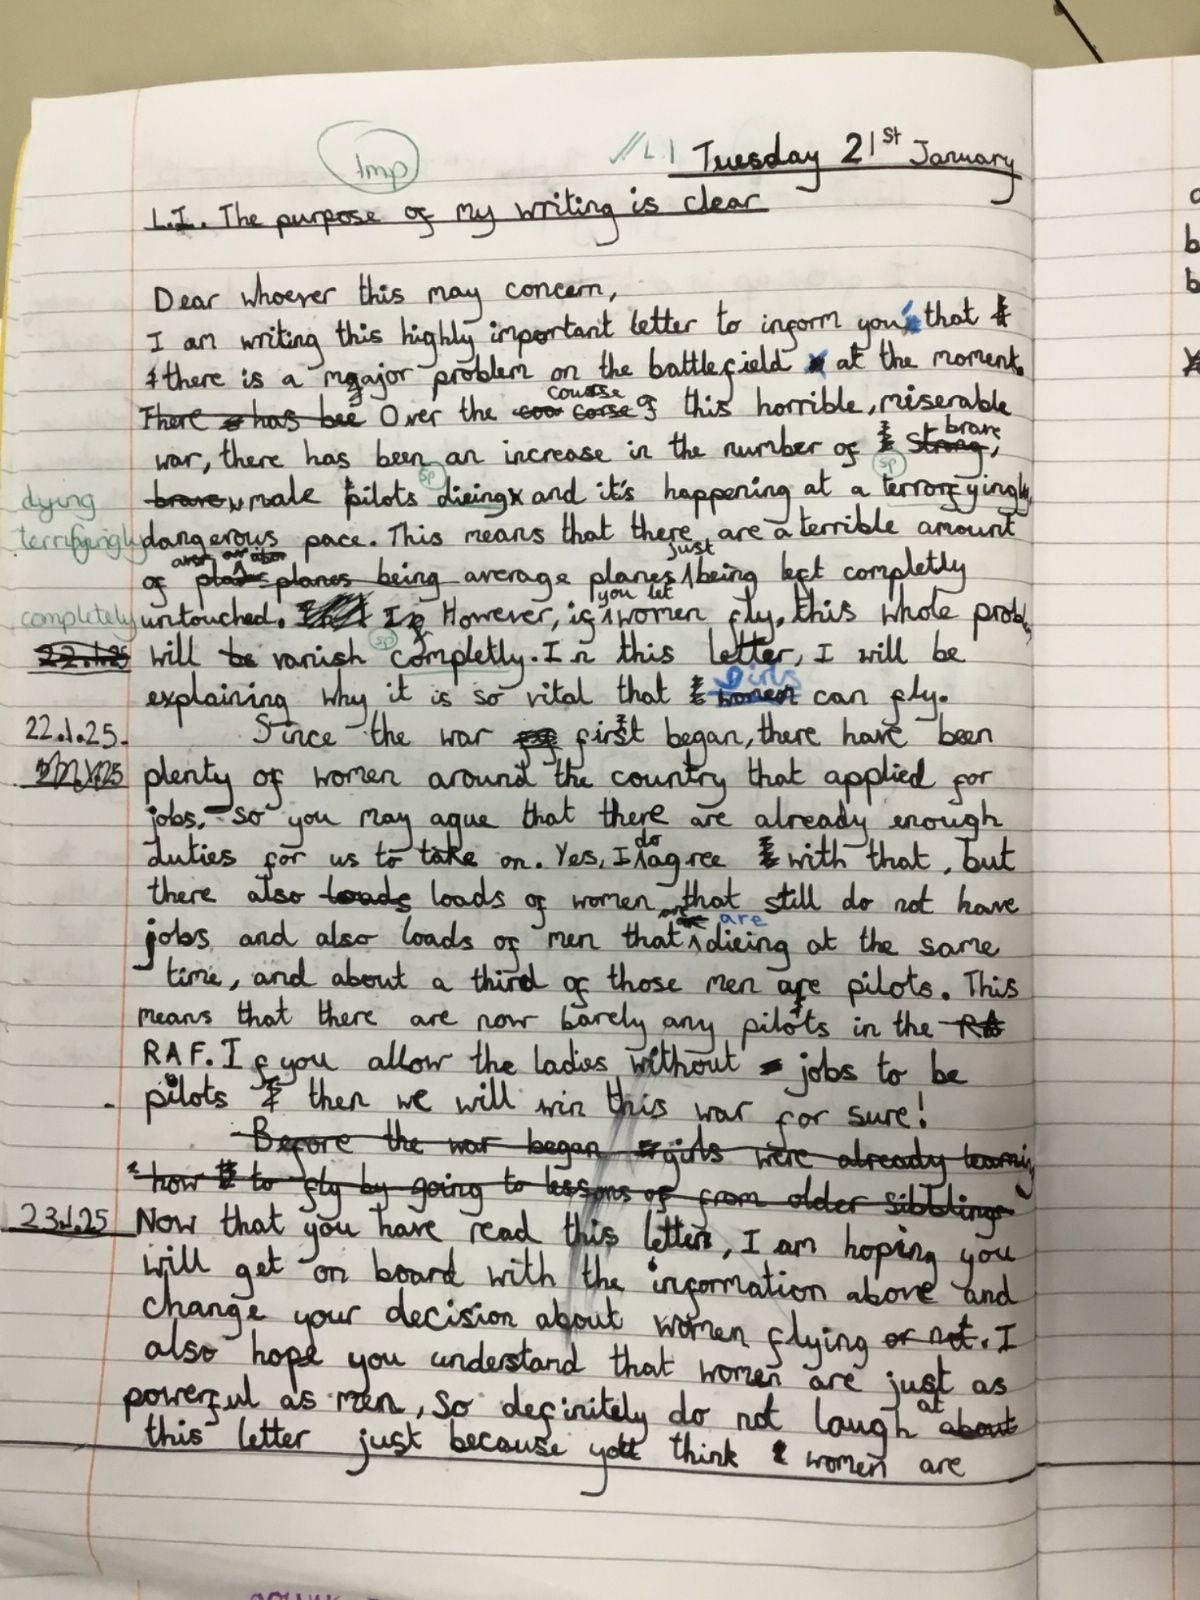 Imp
//L.I Tuesday 21st January
L.I. The purpose of my writing is clear
Dear whoever this may concern,
I am writing this highly important letter to inform you that
there is a major problem on the battlefield at the moment.
There has bee Over the coo corse course of this horrible, miserable
war, there has been an increase in the number of strong, brave
sp
brave male pilots dieing and it's happening at a terrorfyingly
sp
dying
terrifyingly
dangerous pace. This means that there are a terrible amount
of planes being average planes just being left completly
untouched. However, if you let women fly, this whole probl
completely
sp
22.1.25
will be vanish completly. In this letter, I will be
explaining why it is so vital that women girls can fly.
22.1.25.
Since the war first began, there have been
plenty of women around the country that applied for
jobs, so you may ague that there are already enough
duties for us to take on. Yes, I do agree with that, but
there also loads loads of women that still do not have
jobs and also loads of men that are dieing at the same
time, and about a third of those men are pilots. This
means that there are now barely any pilots in the RA
RAF. If you allow the ladies without jobs to be
pilots then we will win this war for sure!
Before the war began girls were already learning
how to fly by going to lessons of from older sibblings
23.1.25
Now that you have read this letter, I am hoping you
will get on board with the information above and
change your decision about women flying or not. I
also hope you understand that women are just as
powerful as men, So definitely do not laugh at about
this letter just because you think women are